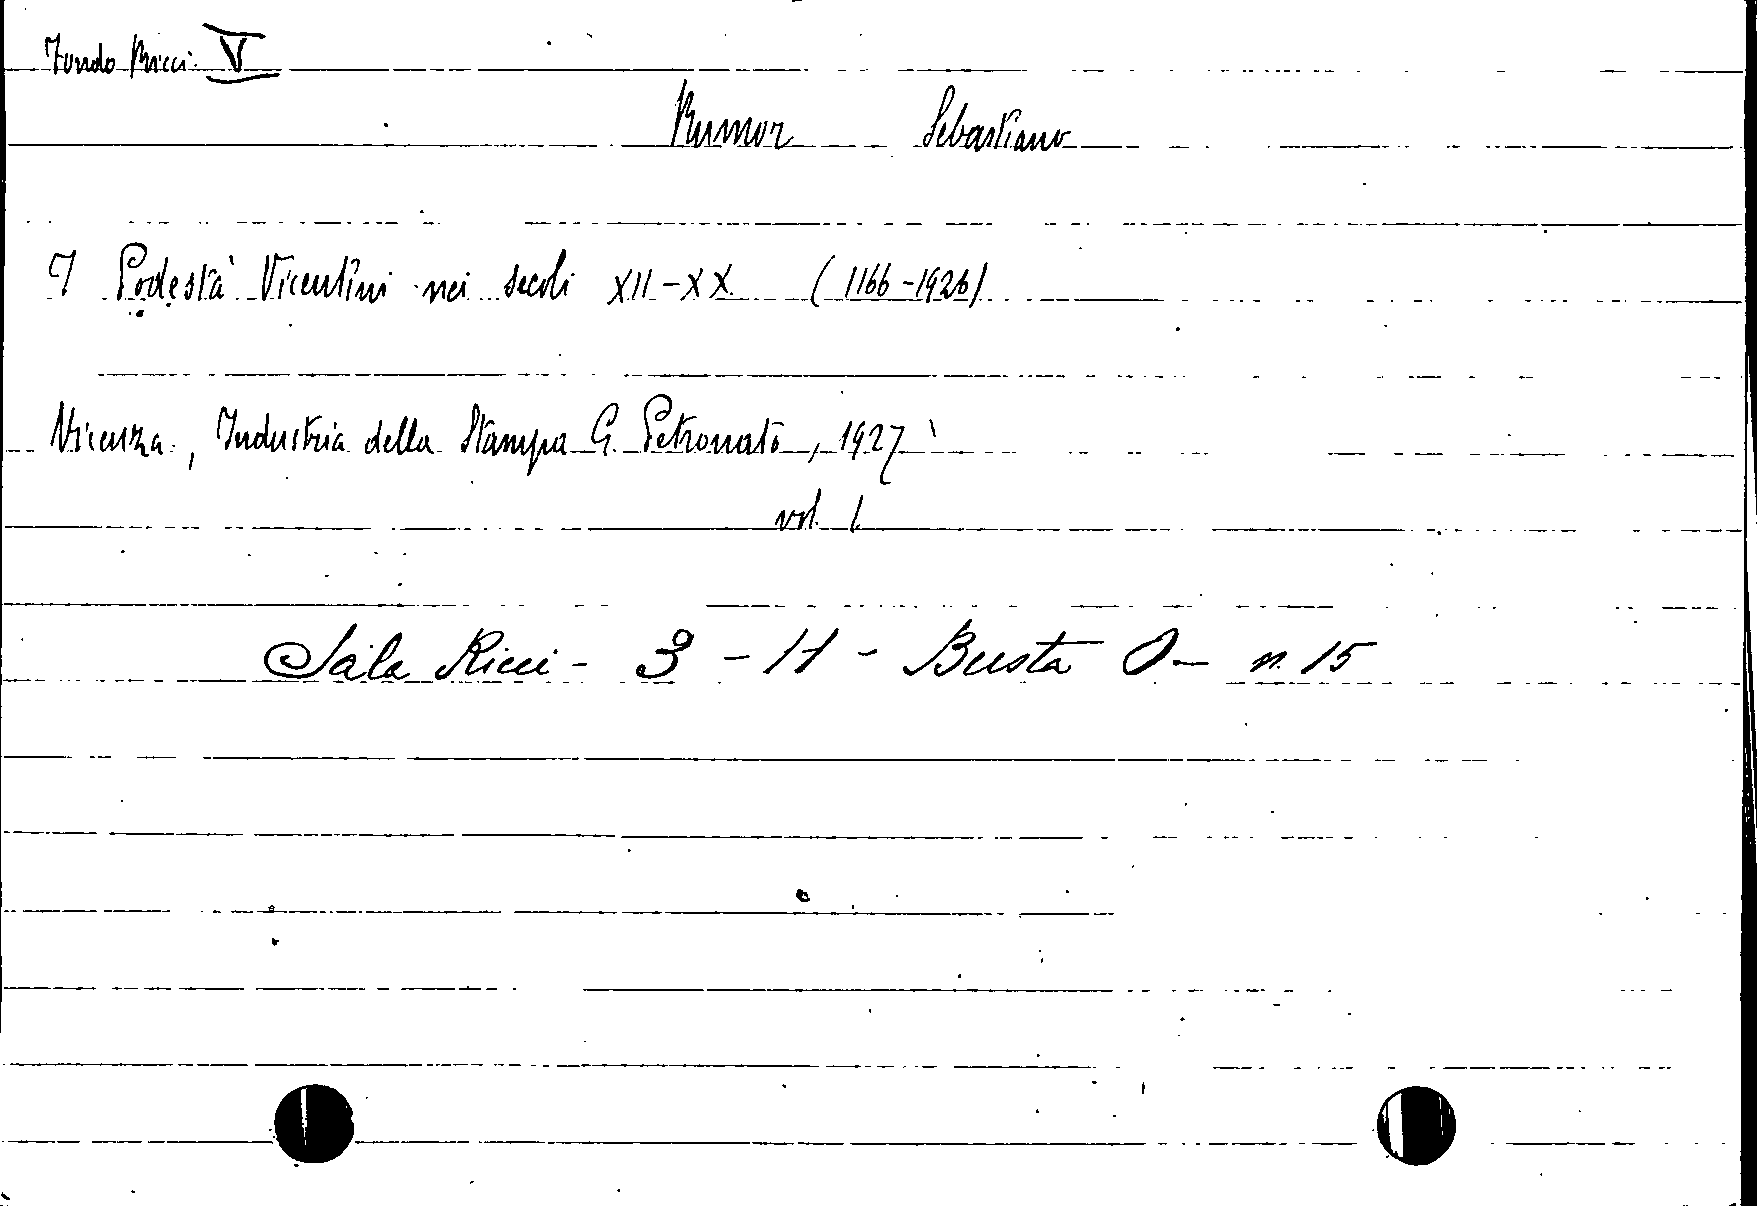 Fondo Ricci V
Rumor Sebastiano
I Podestà Vicentini nei secoli XII-XX (1166-1926)
Vicenza, Industria della Stampa G. Petronato, 1927
vol. 1.
Sala Ricci - 3 - H - Busta - n. 15